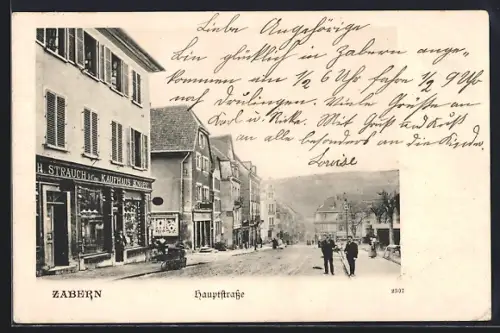 Liebe Angehörige
Bin glücklich in Zabern ange=
kommen um ½ 6 Uhr fahre ½ 9 Uhr
nach Drulingen. Viele Grüsse an
Karl u. Rike. Mit Gruß und Kuß
an alle besonders an die Kinder.
Lowise
H. STRAUCH KAUFHAUS KNOPF
ZABERN
Hauptstraße